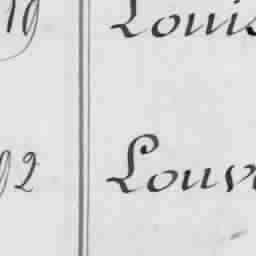 19 Louis
92 Louv